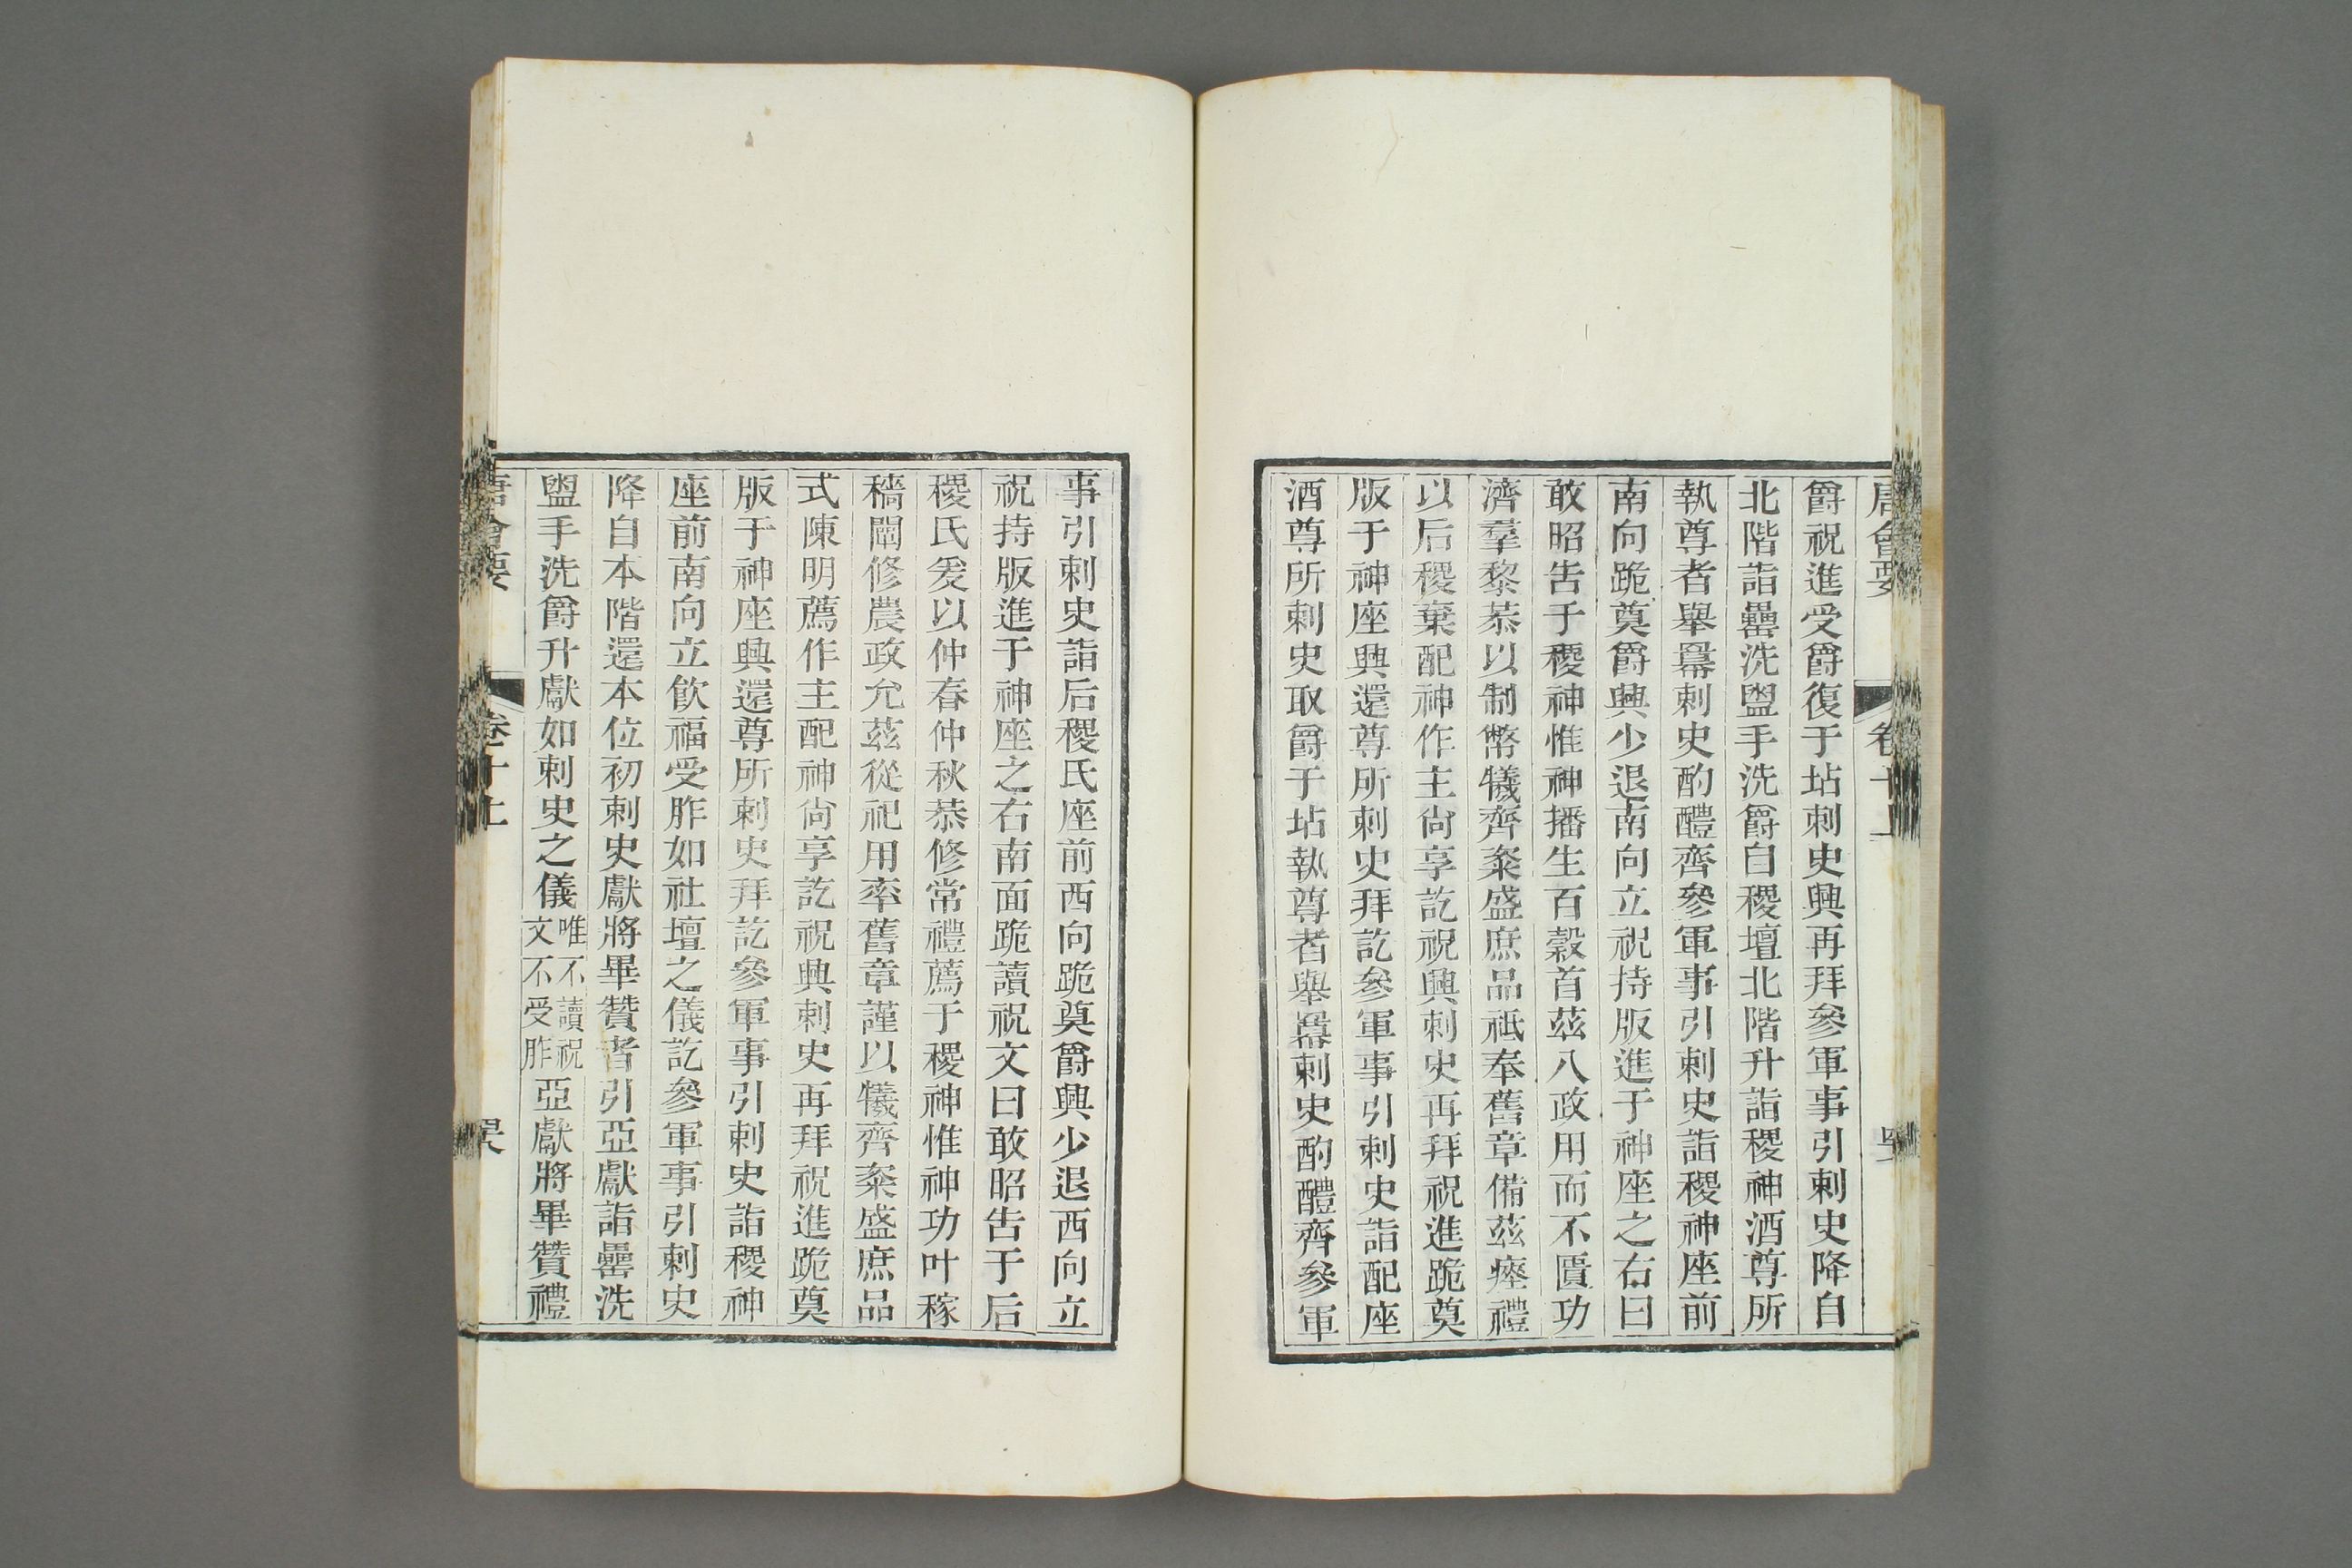 唐會要 卷十上
爵祝進受爵復于坫刺史興再拜參軍事引刺史降自
北階詣罍洗盥手洗爵自稷壇北階升詣稷神酒尊所
執尊者舉羃刺史酌醴齊參軍事引刺史詣稷神座前
南向跪奠爵興少退南向立祝持版進于神座之右曰
敢昭告于稷神惟神播生百穀首茲八政用而不匱功
濟羣黎恭以制幣犧齊粢盛庶品祗奉舊章備茲瘞禮
以后稷棄配神作主尙享訖祝興刺史再拜祝進跪奠
版于神座興還尊所刺史拜訖參軍事引刺史詣配座
酒尊所刺史取爵于坫執尊者舉羃刺史酌醴齊參軍
事引刺史詣后稷氏座前西向跪奠爵興少退西向立
祝持版進于神座之右南面跪讀祝文曰敢昭告于后
稷氏爰以仲春仲秋恭修常禮薦于稷神惟神功叶稼
穡闡修農政允茲從祀用率舊章謹以犧齊粢盛庶品
式陳明薦作主配神尙享訖祝興刺史再拜祝進跪奠
版于神座興還尊所刺史拜訖參軍事引刺史詣稷神
座前南向立飮福受胙如社壇之儀訖參軍事引刺史
降自本階還本位初刺史獻將畢贊者引亞獻詣罍洗
盥手洗爵升獻如刺史之儀唯不讀祝文不受胙亞獻將畢贊禮
唐會要 卷十上